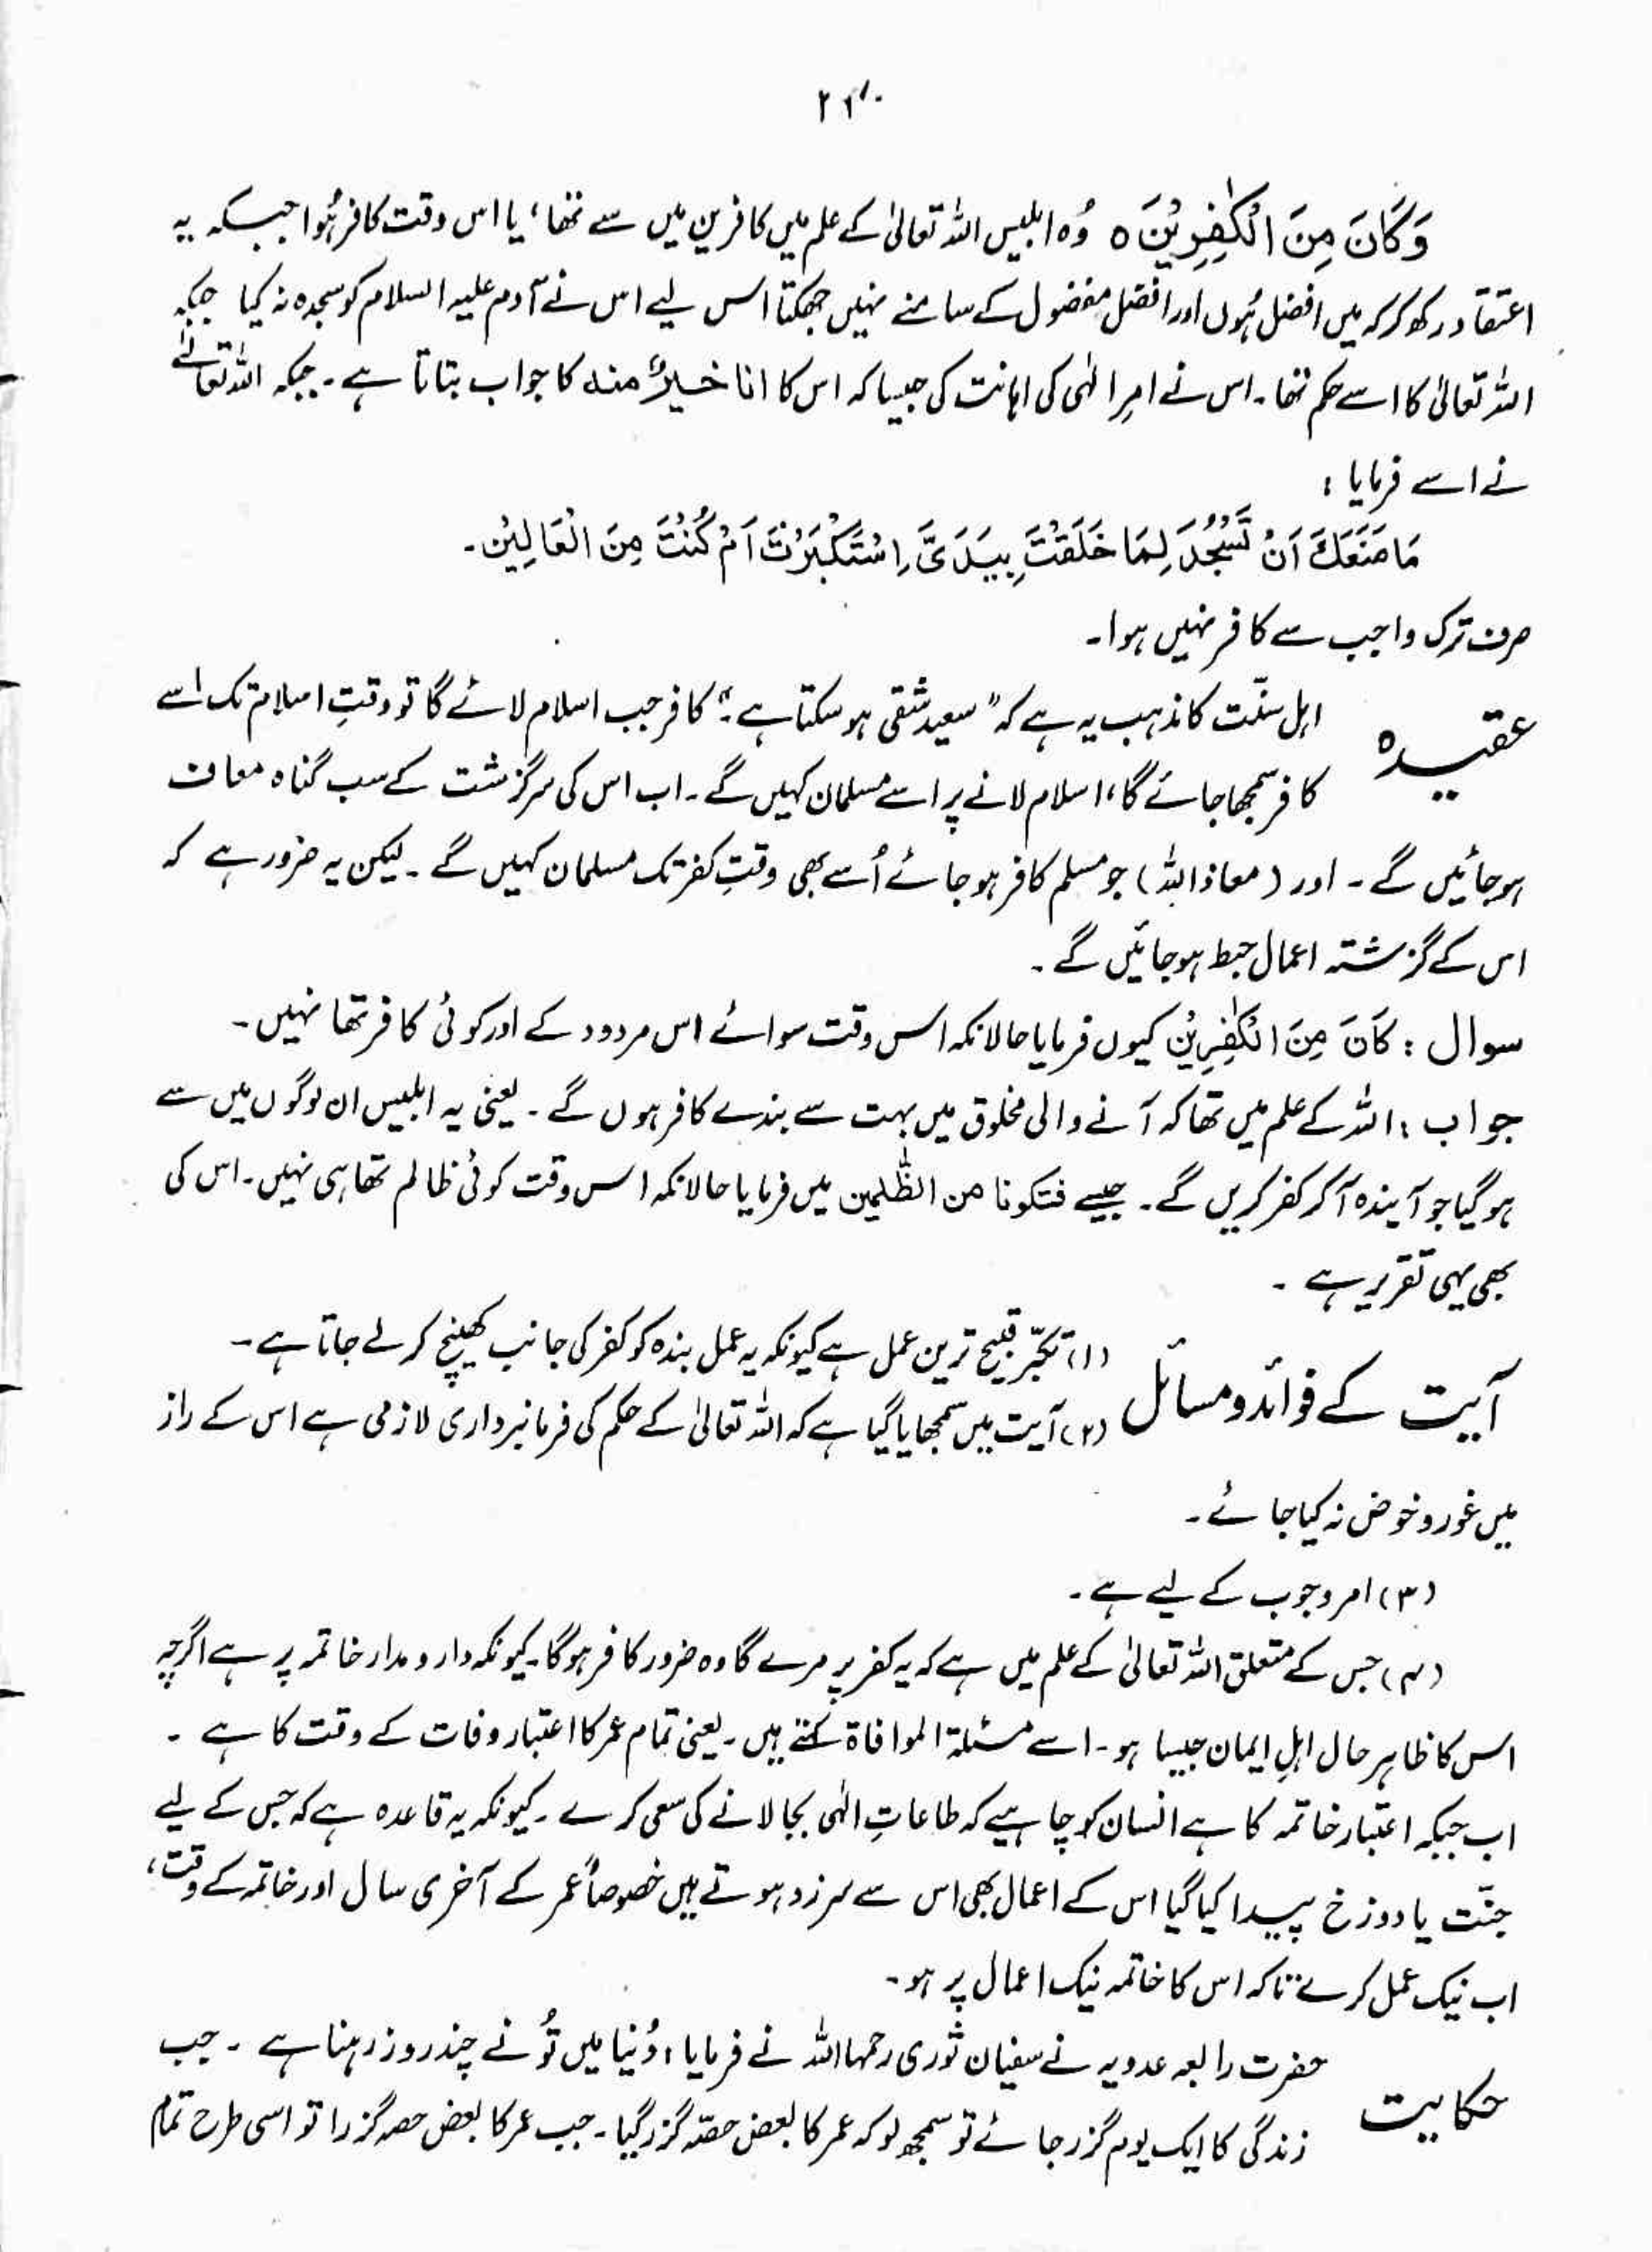 وَكَانَ مِنَ الْكٰفِرِيْنَ ه وُہ ابلیس اللہ تعالیٰ کے علم میں کافرین میں سے تھا، یا اس وقت کافر ہُوا جبکہ یہ
اعتقاد رکھ کر کہ میں افضل ہُوں اور افضل مفضول کے سامنے نہیں جھکتا اس لیے اس نے آدم علیہ السلام کو سجدہ نہ کیا جبکہ
اللہ تعالیٰ کا اسے حکم تھا۔ اس نے امرِ الٰہی کی اہانت کی جیسا کہ اس کا انا خیرٌ منه کا جواب بتاتا ہے۔ جبکہ اللہ تعالےٰ
نے اسے فرمایا :
مَا مَنَعَكَ اَنْ تَسْجُدَ لِمَا خَلَقْتُ بِيَدَىَّ اِسْتَكْبَرْتَ اَمْ كُنْتَ مِنَ الْعَالِيْنَ۔
صرف ترک واجب سے کافر نہیں ہوا۔
عقیدہ اہل سنّت کا مذہب یہ ہے کہ "سعید شقی ہو سکتا ہے"؛ کافر جب اسلام لائے گا تو وقتِ اسلام تک اسے
کافر سمجھا جائے گا، اسلام لانے پر اسے مسلمان کہیں گے۔ اب اس کی سرگزشت کے سب گناہ معاف
ہو جائیں گے۔ اور (معاذ اللہ) جو مسلم کافر ہو جائے اُسے بھی وقتِ کفر تک مسلمان کہیں گے۔ لیکن یہ ضرور ہے کہ
اس کے گزشتہ اعمال حبط ہو جائیں گے۔
سوال : كَانَ مِنَ الْكٰفِرِيْنَ کیوں فرمایا حالانکہ اس وقت سوائے اس مردود کے اور کوئی کافر تھا نہیں۔
جواب : اللہ کے علم میں تھا کہ آنے والی مخلوق میں بہت سے بندے کافر ہوں گے۔ یعنی یہ ابلیس ان لوگوں میں سے
ہو گیا جو آیندہ آ کر کفر کریں گے۔ جیسے فتكونا من الظّٰلمين میں فرمایا حالانکہ اس وقت کوئی ظالم تھا ہی نہیں۔ اس کی
بھی یہی تقریر ہے۔
آیت کے فوائد و مسائل (۱) تکبّر قبیح ترین عمل ہے کیونکہ یہ عمل بندہ کو کفر کی جانب کھینچ کر لے جاتا ہے۔
(۲) آیت میں سمجھایا گیا ہے کہ اللہ تعالیٰ کے حکم کی فرمانبرداری لازمی ہے اس کے راز
میں غور و خوض نہ کیا جائے۔
(۳) امر وجوب کے لیے ہے۔
(۴) جس کے متعلق اللہ تعالیٰ کے علم میں ہے کہ یہ کفر پر مرے گا وہ ضرور کافر ہو گا۔ کیونکہ دار و مدار خاتمہ پر ہے اگرچہ
اس کا ظاہر حال اہلِ ایمان جیسا ہو۔ اسے مسئلۃ الموافاۃ کہتے ہیں۔ یعنی تمام عمر کا اعتبار وفات کے وقت کا ہے۔
اب جبکہ اعتبار خاتمہ کا ہے انسان کو چاہیے کہ طاعاتِ الٰہی بجا لانے کی سعی کرے۔ کیونکہ یہ قاعدہ ہے کہ جس کے لیے
جنّت یا دوزخ پیدا کیا گیا اس کے اعمال بھی اس سے سرزد ہوتے ہیں خصوصاً عمر کے آخری سال اور خاتمہ کے وقت،
اب نیک عمل کرے تاکہ اس کا خاتمہ نیک اعمال پر ہو۔
حکایت حضرت رابعہ عدویہ نے سفیان ثوری رحمہا اللہ نے فرمایا؛ دُنیا میں تُو نے چند روز رہنا ہے۔ جب
زندگی کا ایک یوم گزر جائے تو سمجھ لو کہ عمر کا بعض حصّہ گزر گیا۔ جب عمر کا بعض حصہ گزرا تو اسی طرح تمام